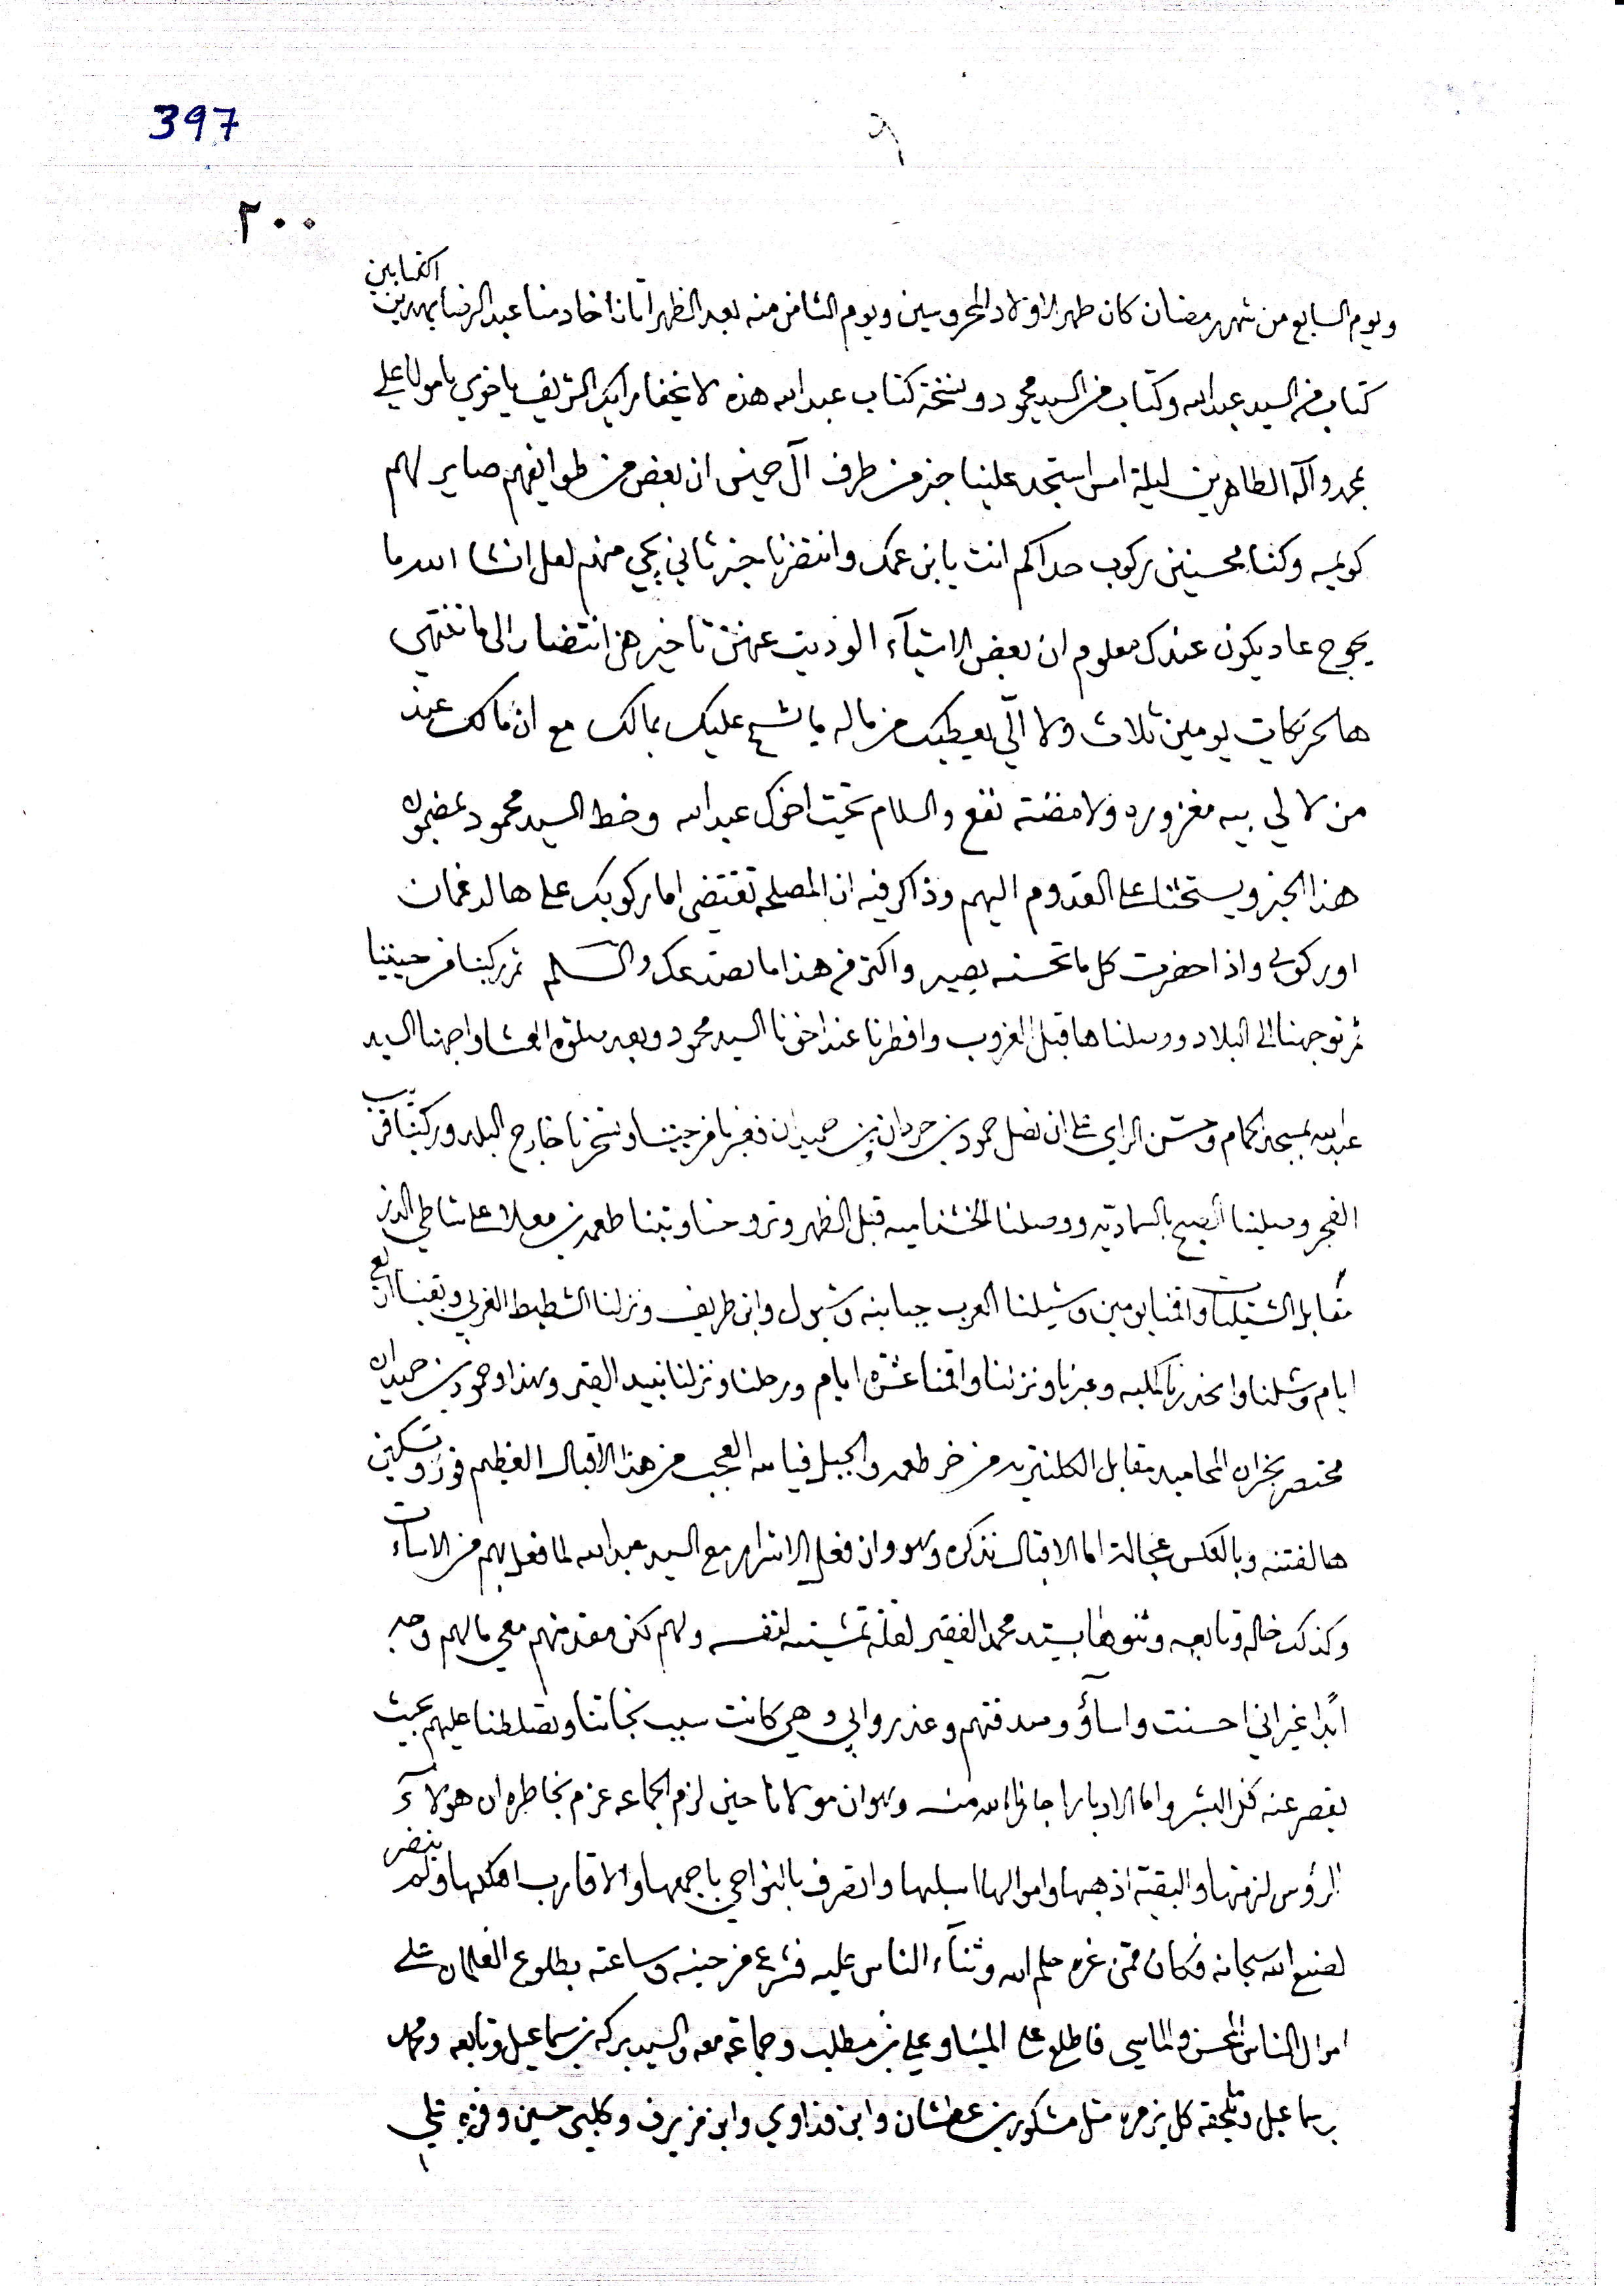 397
٩
٢٠٠
ويوم السابع من شهر رمضان كان طهر الاولاد المحروسين ويوم الثامن منه بعد الظهر اتانا خادمنا عبد الرضا بهدين اكتابين
كتاب من السيد عبد الله وكتاب من السيد محمود ونسخة كتاب عبد الله هذه لا يخفا رايك الشريف ياخوي يا مولا علي
بمحمد وآله الطاهرين ليلة امس استجد علينا خبر من طرف آل خميس ان بعض من طوايفهم صاير لهم
كويمه وكنا محسنين ركوب حداكم انت يابن عمك وانتضرنا خبر ثاني يجي منهم لعل انشا الله ما
يحوج عاد يكون عندك معلوم ان بعض الاشياء الوديت عنهن تاخيرهن انتضار الى ما تنتهي
هالحركات يومين ثلاث ولا الّي يعطيك من ماله يشح عليك بمالك مع ان مالك عند
من لا لي بيه مغزوره ولا مضنة نفع والسلام تحيت اخوك عبد الله وخط السيد محمود بمضمون
هذا الخبر ويستحثنا على القدوم اليهم وذاكر فيه ان المصلحه تقتضي اما ركوبك على هالدغمان
او ركوبي واذا حضرت كل ما تحسنه يصير واكثر من هذا ما نصدعك والسلم ثم ركبنا من حيننا
ثم توجهنا الى البلاد ووصلناها قبل الغروب وافطرنا عند اخونا السيد محمود وبعد صلوة العشا واجهنا السيد
عبد الله بمسجد الحمام وحسن الراي على ان نصل حمود بن حردان بن حميدان فعبرنا من حيننا وتسحرنا خارج البلد وركبنا قريب
الفجر وصلينا الصبح بالسماديه ووصلنا الخشنامیه قبل الظهر وتروحنا وبتنا طعمه بن معلا على شاطي الدز
مقابل الشتيلات واقمنا يومين وشيلنا العرب جبابنه وشبول وابن طريف ونزلنا الشطيط الغربي وبقينا اربع
ايام وشلنا وانحدرنا وعبرنا ونزلنا واقمنا عشرة ايام ورحلنا ونزلنا بنيد القير وهذا وحمود بن حميدان
محتصر بخران المحاميد مقابل من خر طعمه والجبل فيا لله العجب من هذا الاقبال العظيم فوز وتسكين
هالفتنه وبالعكس عجالة اما الاقبال نذكره وهو وان فعل الاشرار مع السيد عبد الله لما فعل بهم من الاساءت
وكذلك خاله وتابعه ونوها بسيد محمد الفقير لقلة تمشيته لنفسه ولهم لكن معهم معي مالهم وجه
ابدًا غير اني احسنت واساؤ وصدقتهم وغدروا بي وهي كانت سبب نجاتنا وتصلطنا عليهم بحيث
يقصر عنه فكر البشر واما الادبار اجارنا الله منه وهو ان مولانا حين لزم الجماعه عزم بخاطره ان هولاء
الرؤس لزمتها والبقية اذهبها واموالها اسلبها واتصرف بالنواحي باجمعها والاقارب اهلكها ولم ينضر
لصنع الله سبحانه فكان ممن غره حلم الله وثناء الناس عليه فشرع من حينه وساعته بطلوع الغلمان على
اموال الناس المحسن والماسي فاطلع على الميناو علي بن مطلب وجماعة معه والسيد بركه بن سماعيل وتابعه ومحمد
بن سماعيل وتلحقه كل زمره مثل مشكور بن عطشان وابن فداوي وابن مزيرف وكلبي حسين